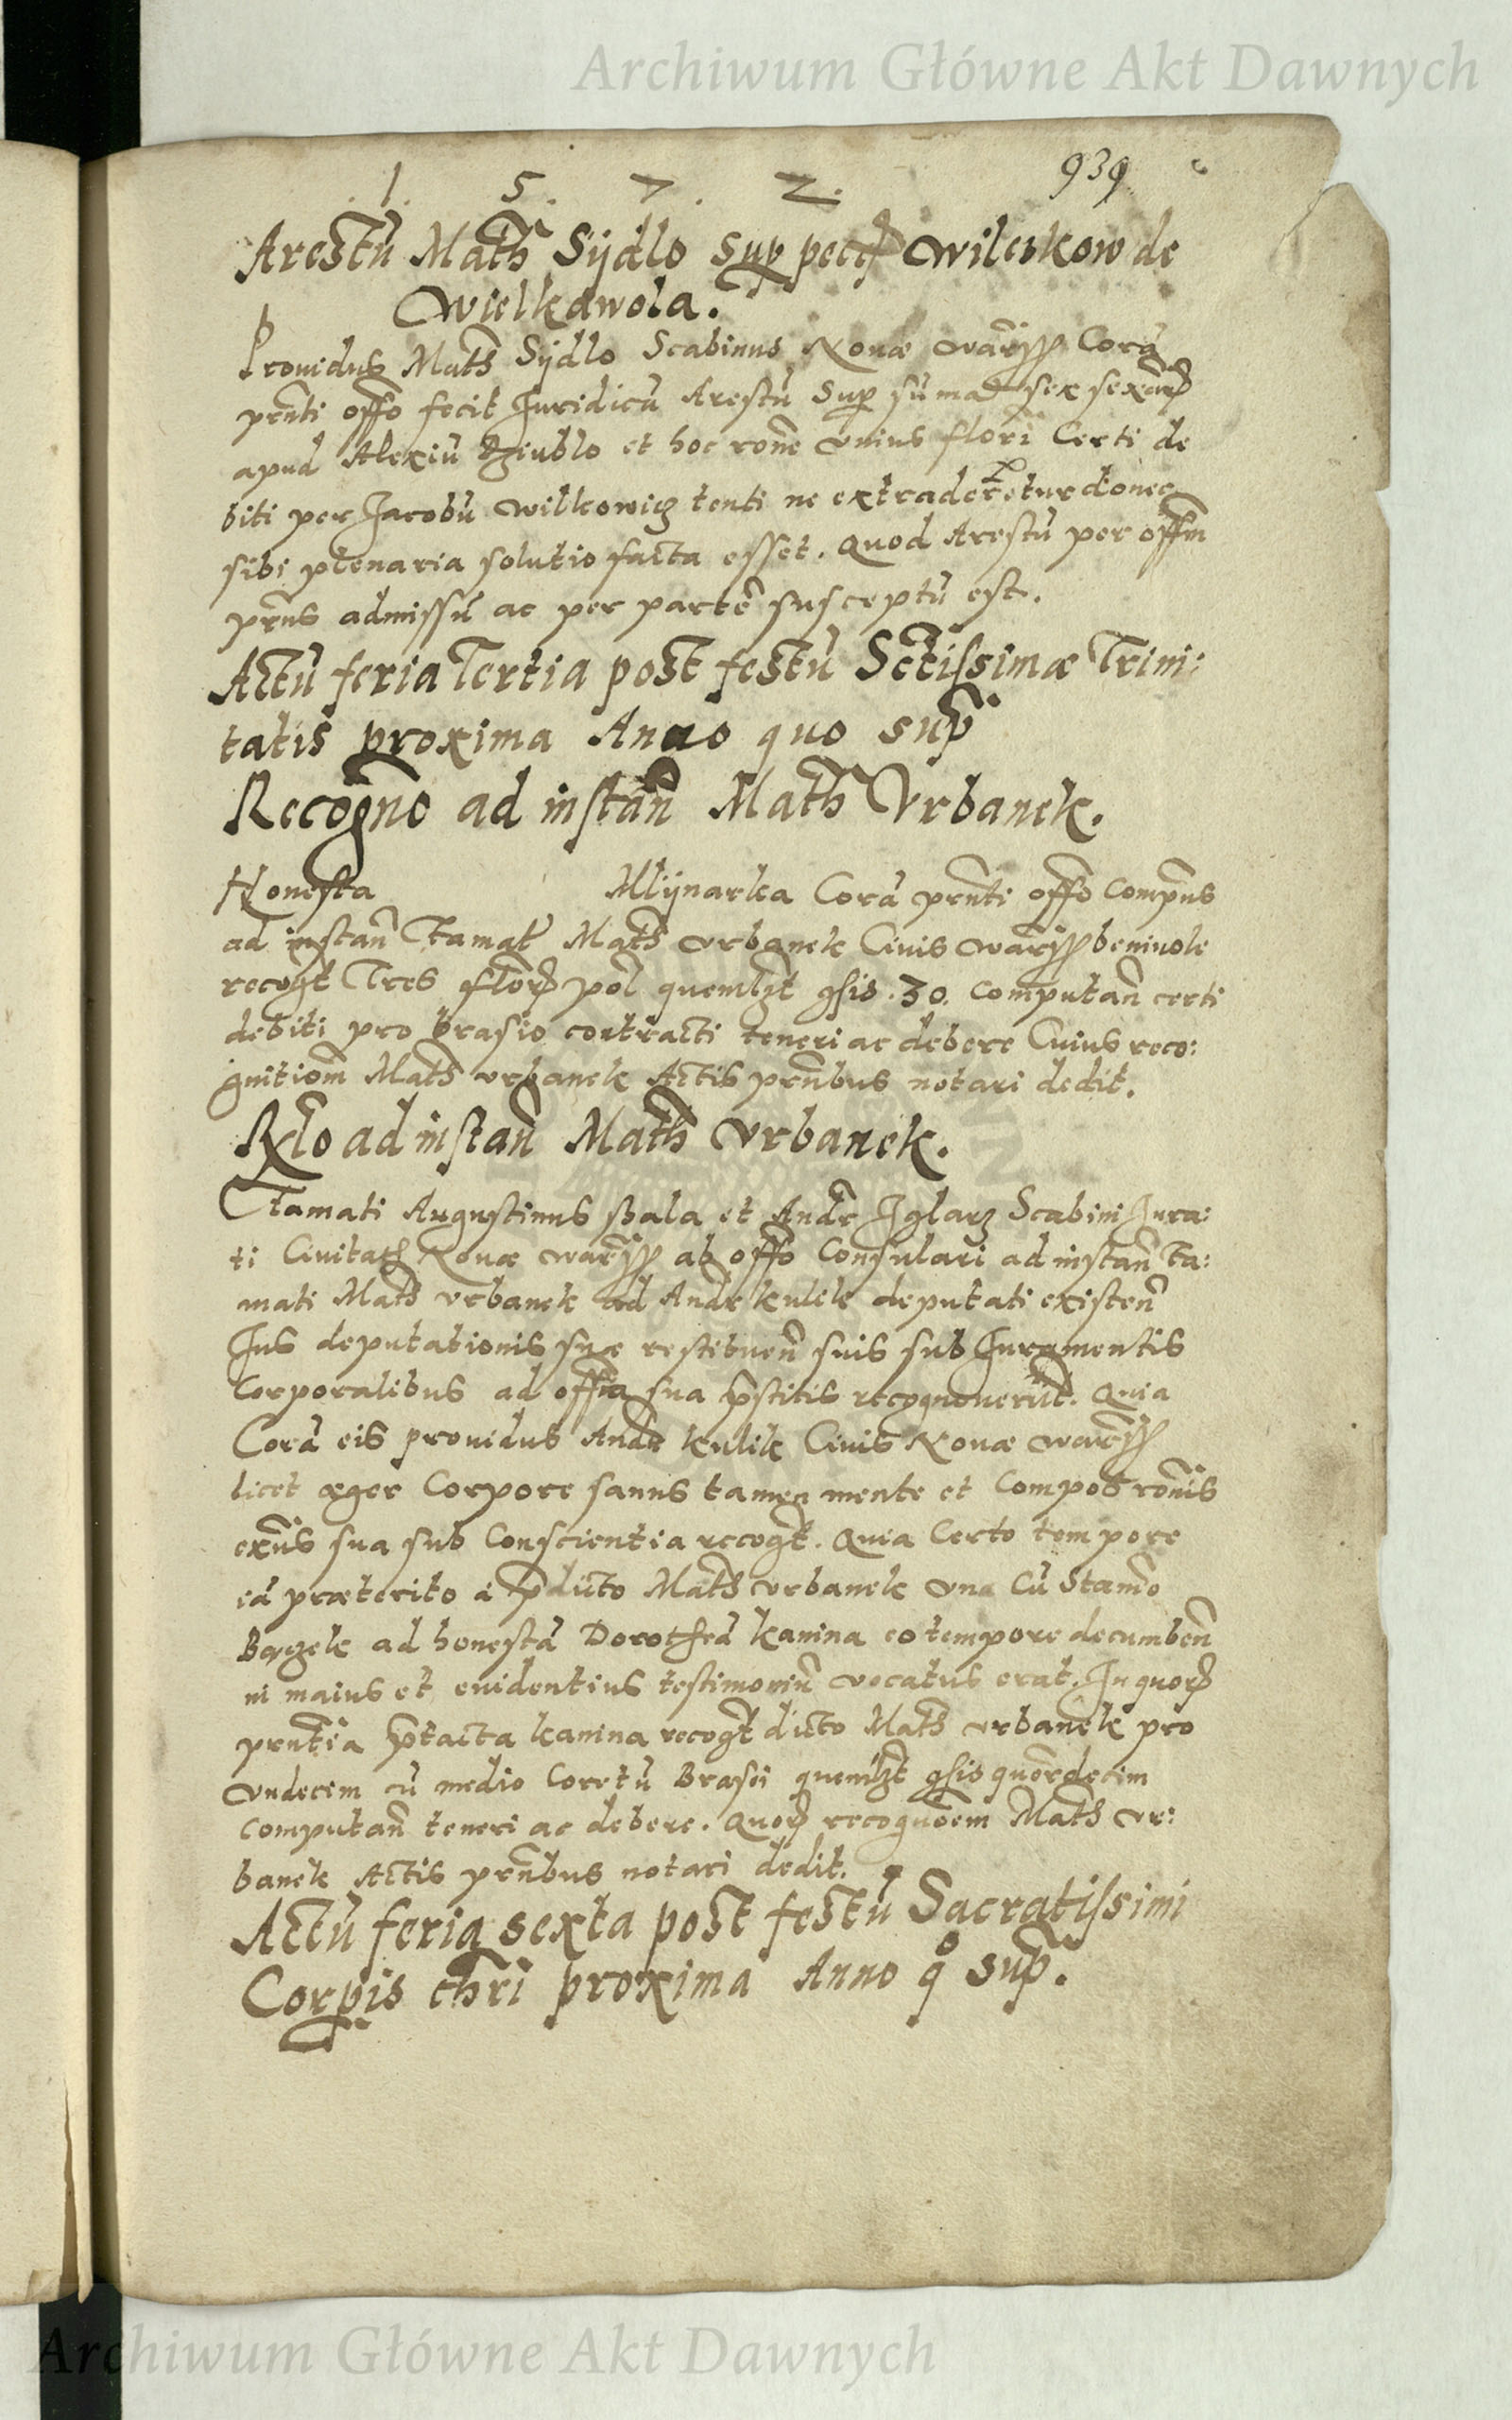 Archiwum Główne Akt Dawnych
1 5. 7. 2.
939
Arestũ Math Sÿdlo sup pecũ Wilczkow de
Wielkawola.
Prouidus Maths Sÿdlo Scabinus Nouæ Corã
prñti offo fecit Juridicũ Arestũ Sup sũma sex
apud Alexiũ et hoc rone vnius flori Certi de
biti per Jacobũ Wilkowicz tenti ne extraderetur donec
sibi plenaria solutio facta esset. Quod Arestũ per offm
prñs admissũ ac per partẽ susceptũ est.
Actũ feria Tertia post festũ Sctissimæ Trini:
tatis proxima Anno quo sup
Recogno ad instañ Math Vrbanek.
Honesta Mlÿnarka Corã prñti offo Compñs
ad instañ ffamat Maths Vrbanek Ciuis beniuole
recogt Tres flor pol quemlzt gsis .30. computañ certi
debiti pro brasio contracti teneri ac debere Cuius reco:
gnitiom Maths vrbanek Actis prñbus notari dedit.
Rclo ad instañ Math Vrbanek.
ffamati Augustinus ßala et Andr Iglarz Scabini Jura:
ti Ciuitatis Nouæ ab offo Consulari ad instañ ffa:
mati Maths vrbanek ad Andr kulik deputati existeñ
Jus deputationis suæ restibueñ suis sub Juramentis
Corporalibus ad offia sua pstitis recognouerũt. Quia
Corã eis prouidus Andr kulik Ciuis Nouæ
licet æger Corpore sanus tamen mente et Compos ronis
exñs sua sub Conscientia recogt. Quia Certo tempore
iã præterito a pdicto Maths vrbanek vna Cũ Stanio
ad honestã Dorotheã kanina eo tempore decumbeñ
in maius et euidentius testimoniũ vocatus erat. In quor
prñtia ptacta kanina recogt dicto Maths vrbanek pro
vndecim cũ medio Coretũ Brasii quemlzt gsis quordecim
computañ teneri ac debere. Quor recognoem Maths vr:
banek Actis prñbus notari dedit.
Actũ feria sexta post festũ Sacratissimi
Corpis chri proxima Anno qo sup.
Archiwum Główne Akt Dawnych